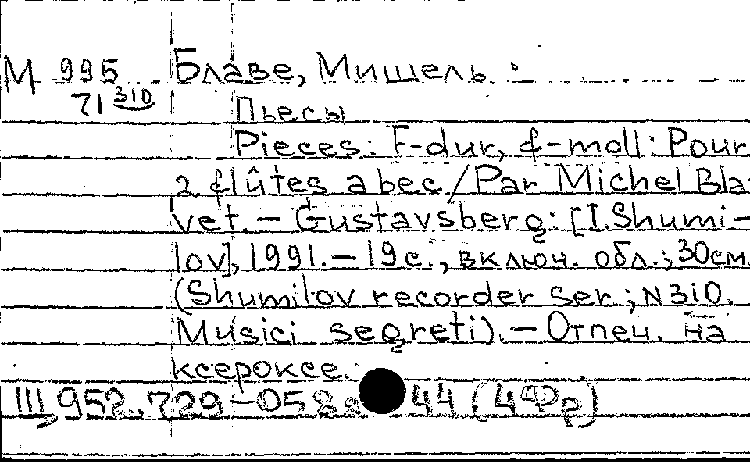 М 995 Блаве, Мишель.
71 310 Пьесы
Pieces: F-dur, f-moll: Pour
2 flûtes a bec / Par Michel Bla-
vet. – Gustavsberg: [I. Shumi-
lov], 1991. – 19 с., включ. обл.; 30см.
(Shumilov recorder ser.; N310.
Musici segreti). – Отпеч. на
ксероксе.